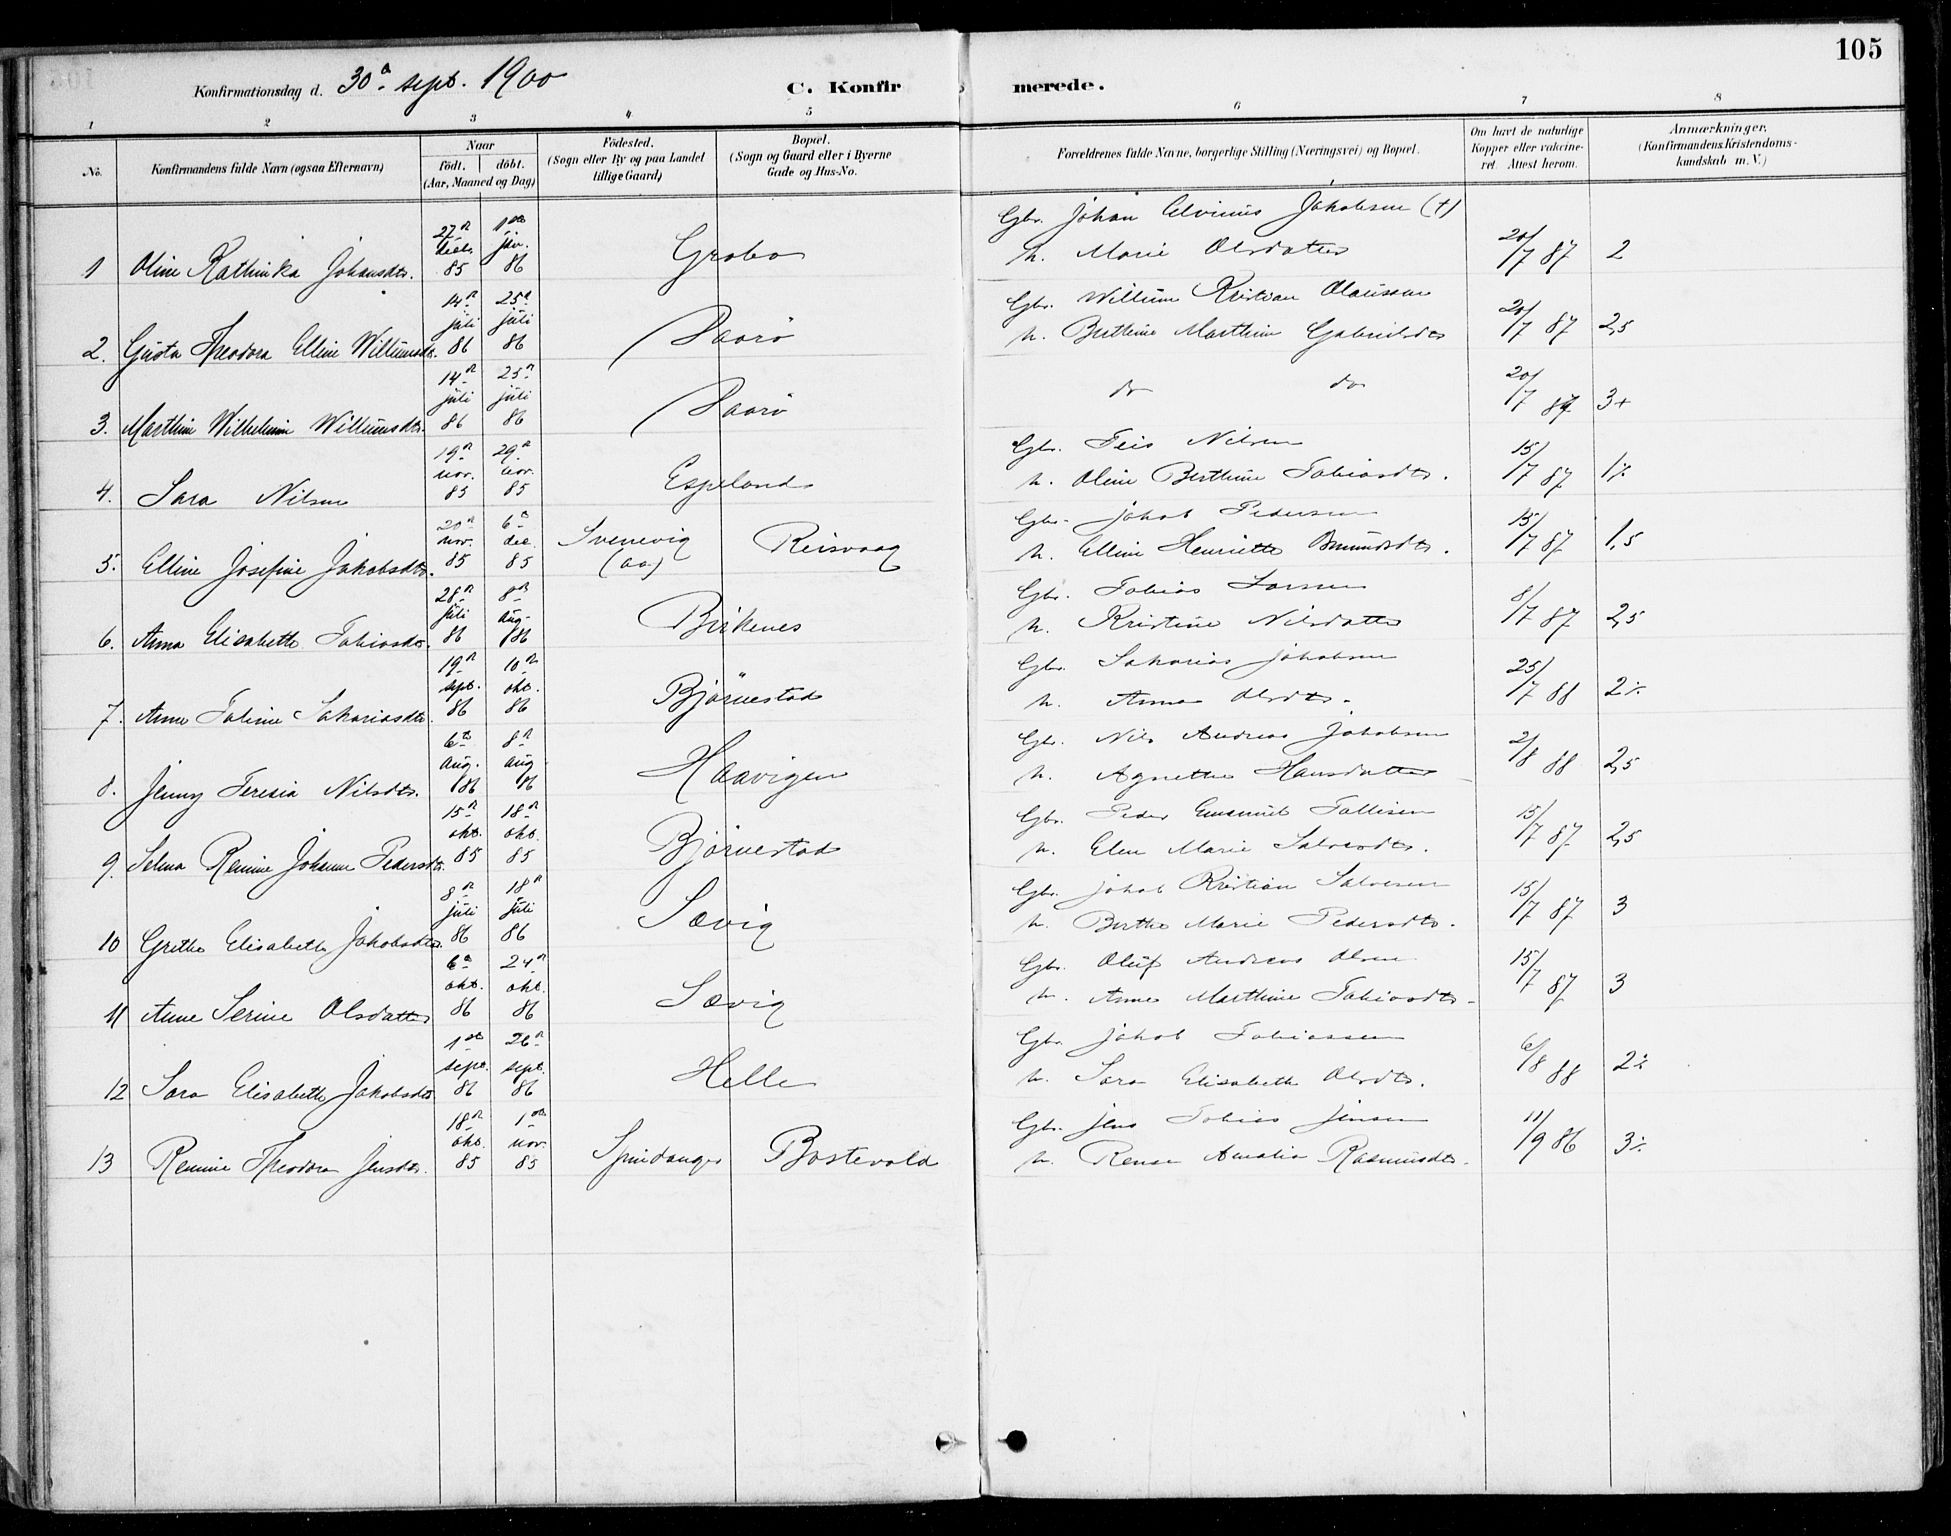 105
Konfirmationsdag d. 30te sept. 1900
C. Konfirmerede.
1 2 3 4 5 6 7 8
No.
Konfirmandens fulde Navn (ogsaa Efternavn)
Naar
födt. döbt.
(Aar, Maaned og Dag)
Födested.
(Sogn eller By og paa Landet
tillige Gaard)
Bopæl.
(Sogn og Gaard eller i Byerne
Gade og Hus-No.
Forældrenes fulde Navne, borgerlige Stilling (Næringsvei) og Bopæl.
Om havt de naturlige
Kopper eller vakcine-
ret. Attest herom.
Anmærkninger.
(Konfirmandens Kristendoms-
kundskab m. V.)
1 Oline Kathinka Johansdtr. 27de 85 1ste jan. 86 Grobo Gbr. Johan Elvinius Jakobsen (+)
h. Marie Olsdatter 20/7 87 2
2. Gusta Theodora Elline Willumsdtr. 14de juli 86 25de juli 86 Paarö Gbr. Willum Kristian Olaussen
h. Berthine Marthine Gabrielsdtr 20/7 87 2,5
3. Marthine Wilhelmine Willumsdtr. 14de juli 86 25de juli 86 Paarö do do 20/7 87 3+
4. Sara Nilsen 19de nov. 85 29de nov. 85 Espeland Gbr. Teis Nilsen
h. Oline Berthine Tobiasdtr. 15/7 87 1÷
5. Elline Josefine Jakobsdtr. 20de nov. 85 6te dec. 85 Svenevig (aa) Reisvaag Gbr. Jakob Pedersen
h. Elline Henriette 15/7 87 1,5
6. Anna Elisabeth Tobiasdtr. 28de juli 86 8de aug. 86 Birkenes Gbr. Tobias Larsen
h. Kristine Nilsdatter 8/7 87 2,5
7. Anne Taline Sakariasdtr. 19de sept. 86 10de okt. 86 Bjørnestad Gbr. Sakarias Jakobsen
h. Anna Olsdtr. 25/7 88 2÷
8. Jenny Teresia Nilsdtr. 6te aug. 86 8de aug 86 Haavigen Gbr. Nils Andreas Jakobsen
h. Agnethe Hansdatter 2/8 88 2,5
9. Selma Remine Johanne Pedersdtr. 15de okt. 85 18de okt. 85 Bjørnestad Gbr. Peder Emanuel Tallisen
h. Elen Marie Salvesdtr. 15/7 87 2,5
10 Grethe Elisabeth Jakobsdtr. 8de juli 86 18de juli 86 Sævig Gbr. Jakob Kristian Salvesen
h. Berthe Marie Pedersdtr. 15/7 87 3
11 Anne Serine Olsdatter 6te okt. 86 24de okt. 86 Sævig Gbr. Oluf Andreas Olsen
h. Anne Marthine Tobiasdtr. 15/7 87 3
12 Sara Elisabeth Jakobsdtr 1ste sept. 86 26de sept. 86 Helle Gbr. Jakob Tobiassen
h. Sara Elisabeth Olsdtr. 6/8 88 2÷
13 Remine Theodora Jensdtr. 18de okt. 85 1ste nov. 85 Spindanger Bostevold Gbr. Jens Tobias Jensen
h. Rense Amalia Rasmusdtr. 11/9 86 3÷